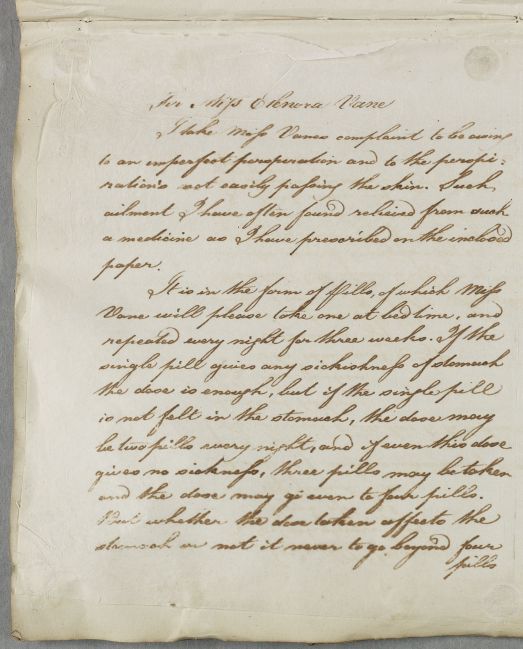 For Miss Elenora Vane
I take Miss Vanes complaint to be owing
to an imperfect perspiration and to the perspi=
ration's not easily passing the skin. Such
ailment I have often found relieved from such
a medicine as I have prescribed on the inclosed
paper.
It is in the form of Pills, of which Miss
Vane will please take one at bed time, and
repeated every night for three weeks. If the
single pill gives any sickishness of stomach
the dose is enough, but if the single pill
is not felt in the stomach, the dose may
be two pills every night, and if even this dose
gives no sickness, three pills may be taken
and the dose may go even to four pills.
But whether the dose taken affects the
stomach or not it never to go beyond four
pills